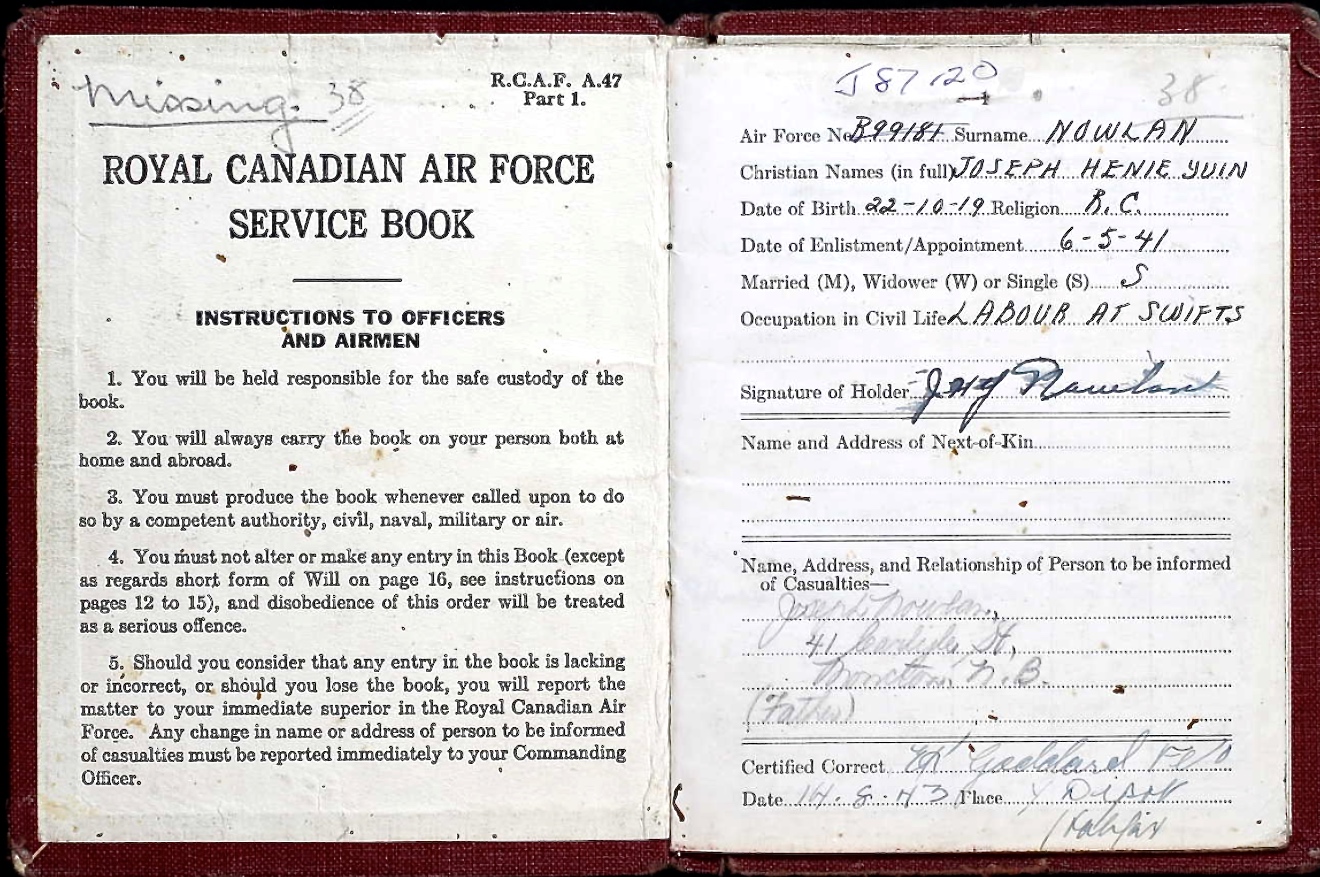 Missing. 38
R.C.A.F. A.47
Part 1.
ROYAL CANADIAN AIR FORCE
SERVICE BOOK
INSTRUCTIONS TO OFFICERS
AND AIRMEN
1. You will be held responsible for the safe custody of the
book.
2. You will always carry the book on your person both at
home and abroad.
3. You must produce the book whenever called upon to do
so by a competent authority, civil, naval, military or air.
4. You must not alter or make any entry in this Book (except
as regards short form of Will on page 16, see instructions on
pages 12 to 15), and disobedience of this order will be treated
as a serious offence.
5. Should you consider that any entry in the book is lacking
or incorrect, or should you lose the book, you will report the
matter to your immediate superior in the Royal Canadian Air
Force. Any change in name or address of person to be informed
of casualties must be reported immediately to your Commanding
Officer.
J87120
38
Air Force No B99181 Surname NOWLAN
Christian Names (in full) JOSEPH HENIE YUIN
Date of Birth 22-10-19 Religion R.C.
Date of Enlistment/Appointment 6-5-41
Married (M), Widower (W) or Single (S) S
Occupation in Civil Life LABOUR AT SWIFTS
Signature of Holder JHY Nowlan
Name and Address of Next-of-Kin
Name, Address, and Relationship of Person to be informed
of Casualties—
Joseph Nowlan,
41 Carlisle St,
Moncton, N.B.
(Father)
Certified Correct Goddard F/O
Date 14.8.43 Place Y Depot
Halifax